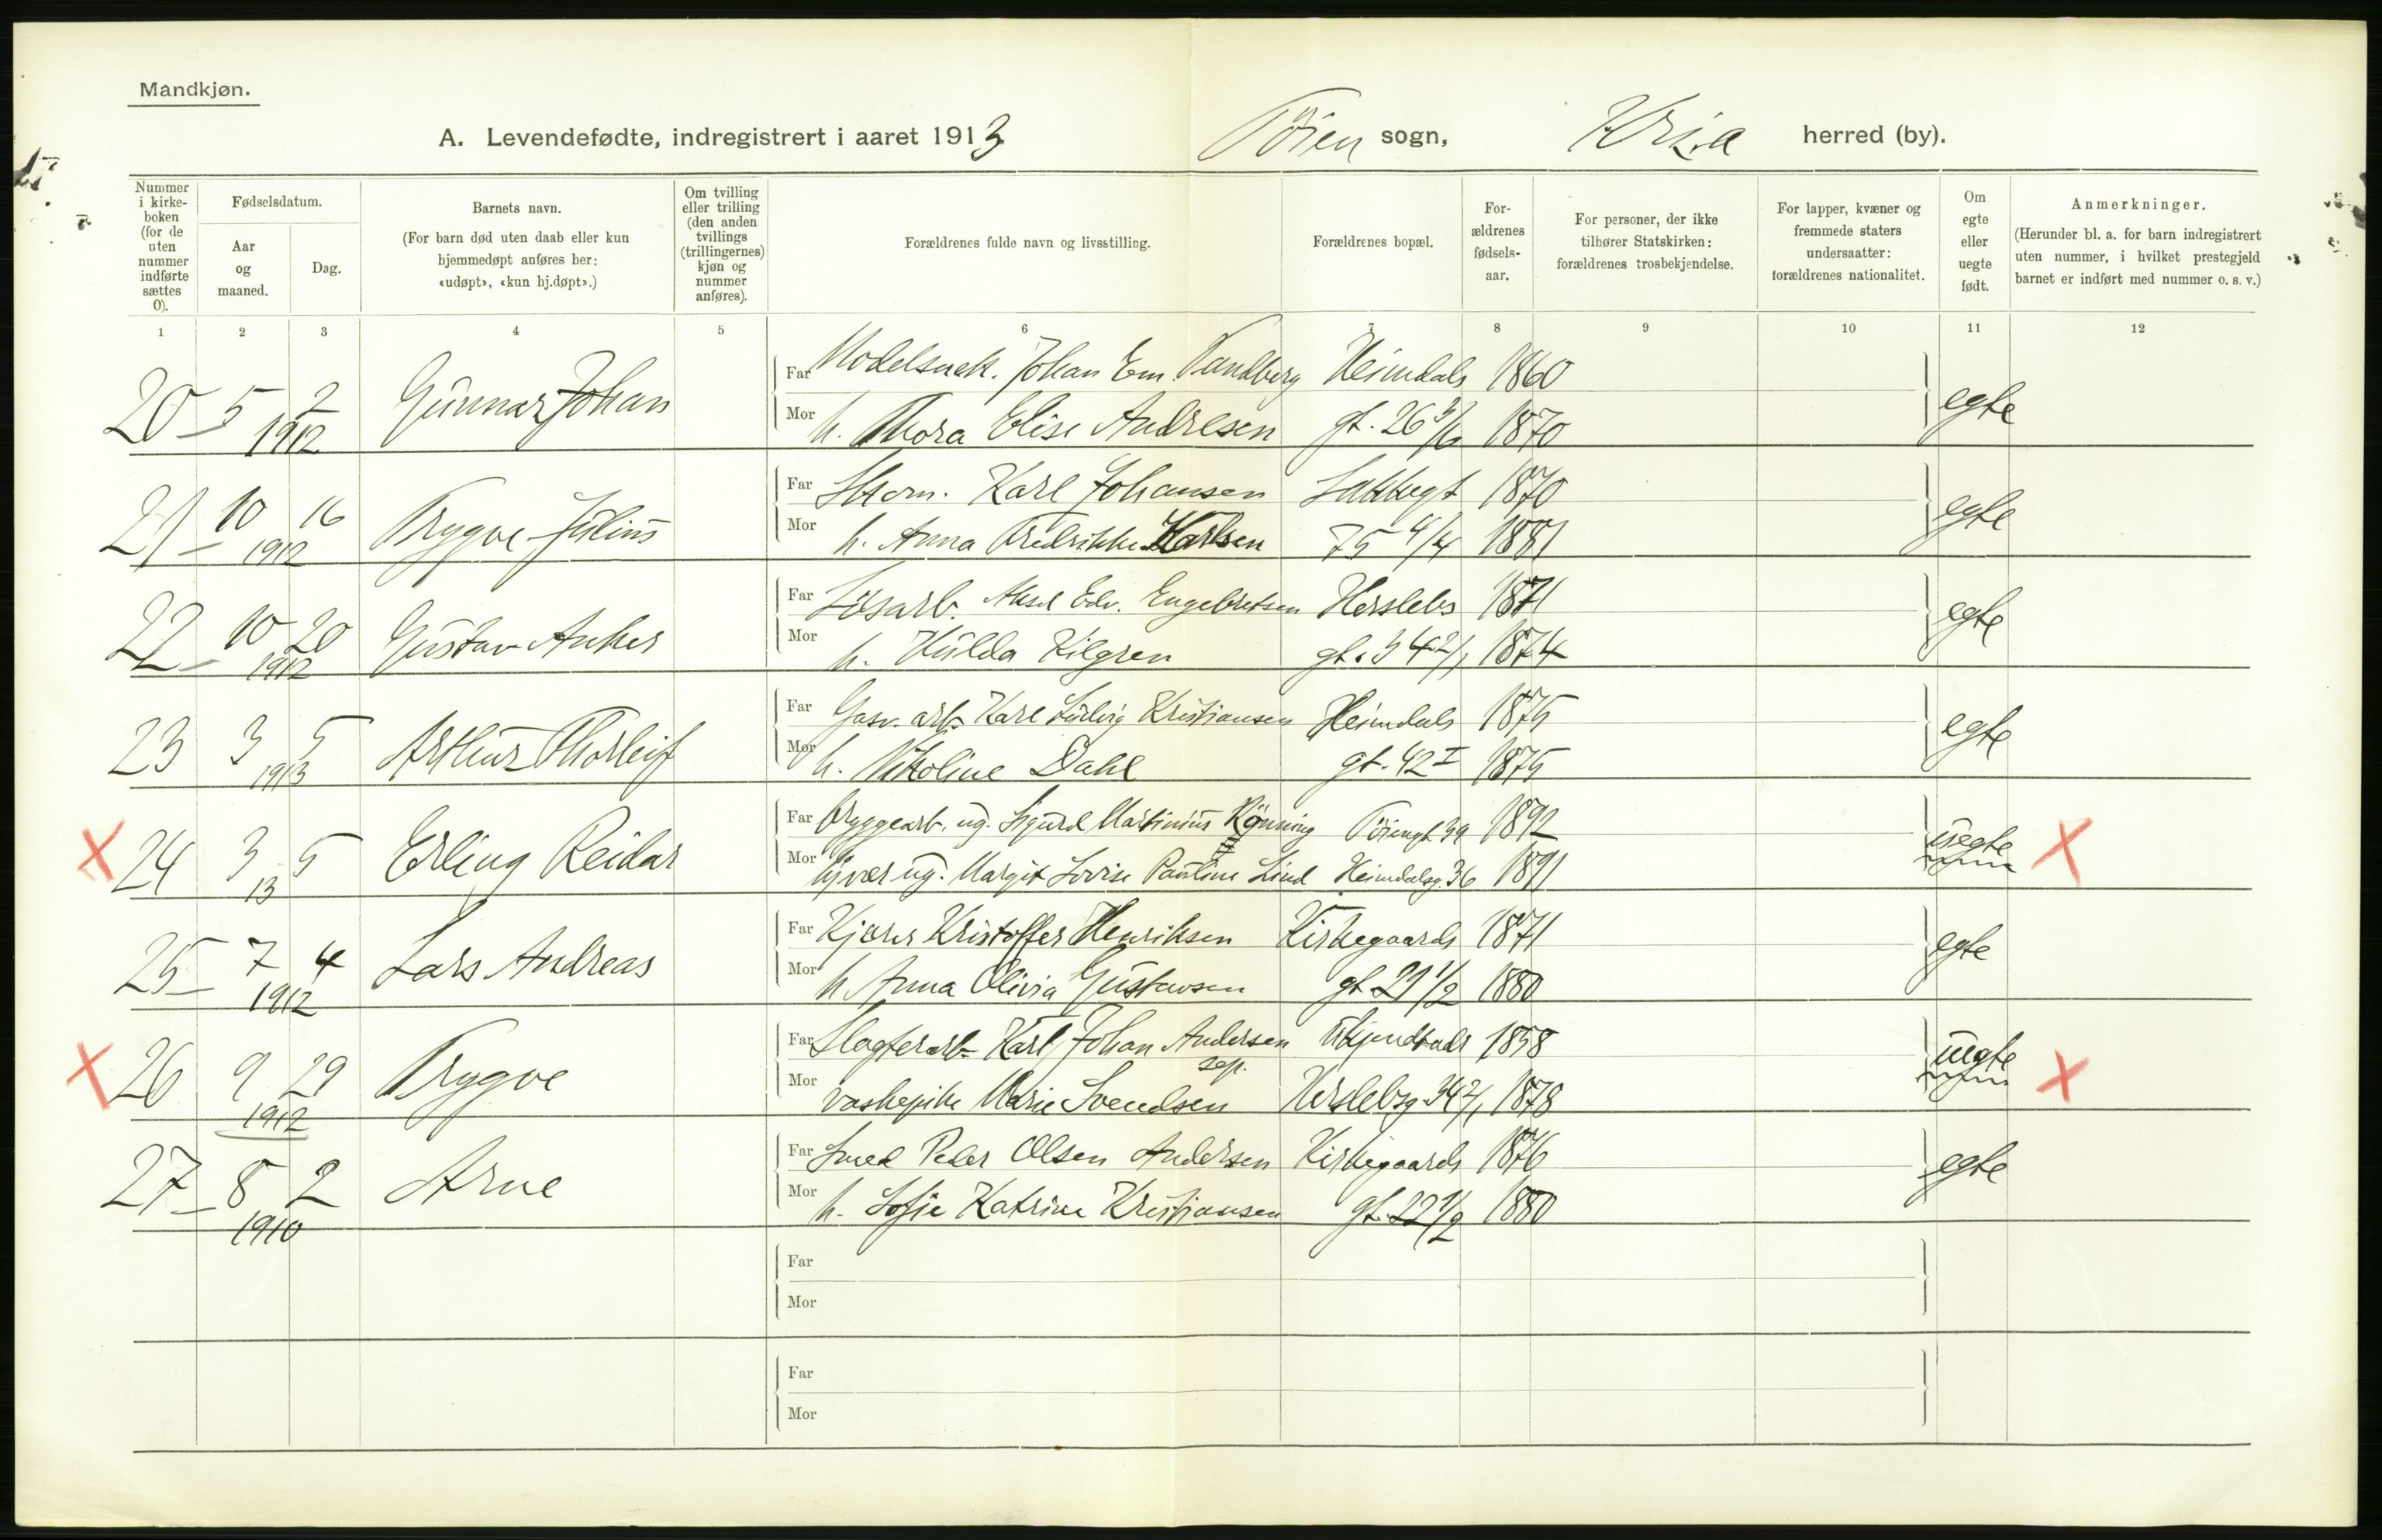 Mandkjøn.
A. Levendefødte, indregistrert i aaret 1913 Töien sogn, Kr.a herred (by).
Nummer i kirke-boken (for de uten nummer indførte sættes 0).
Fødselsdatum.
Aar og maaned.
Dag.
Barnets navn.
(For barn død uten daab eller kun hjemmedøpt anføres her: «udøpt», «kun hj.døpt».)
Om tvilling eller trilling (den anden tvillings (trillingernes) kjøn og nummer anføres).
Forældrenes fulde navn og livsstilling.
Forældrenes bopæl.
For-ældrenes fødsels-aar.
For personer, der ikke tilhører Statskirken: forældrenes trosbekjendelse.
For lapper, kvæner og fremmede staters undersaatter: forældrenes nationalitet.
Om egte eller uegte født.
Anmerkninger.
(Herunder bl. a. for barn indregistrert uten nummer, i hvilket prestegjeld barnet er indført med nummer o. s. v.)
1 2 3 4 5 6 7 8 9 10 11 12
Far Modelsnek. Johan Em. Tandberg Heimdals 1860
20 5 2 1912 Gunnar Johan egte
Mor h. Thora Elise Andresen gt. 26 3/6 1870
Far Karl Johansen 1870
21 10 16 1912 Trygve Julius egte
Mor h. Anna Fredrikke Karlsen 75 4/4 1881
Far Lösarb. Aksel Edv. Engebretsen Herslebs 1871
22 10 20 1912 Gustav Anker egte
Mor h. Hulda Kilgren gt. 34 2/1 1874
Far Gasv. arb. Karl Ludvig Kristiansen Heimdals 1875
23 3 5 1913 Arthur Thorleif egte
Mor h. Nikoline Dahl gt. 42 I 1875
Far Bryggearb. ug. Sigurd Martinius Rönning Töiengt 39 1892
24 3 5 13 Erling Reidar uegte
Mor ug. Margit Lovise Pauline Lind Heimdalsg. 36 1891
Far Kjörer Kristoffer Henriksen Kirkegaards 1871
25 7 4 1912 Lars Andreas egte
Mor h. Anna Olivia Gustavsen gt 21 1/2 1880
Far Slagterarb. Karl Johan Andersen ukjendt adr 1858
sep.
26 9 29 1912 Trygve uegte
Mor vaskepike Marie Svendsen Herslebsg. 34 2/1 1878
Far Smed Peder Olsen Andersen Kirkegaards 1876
27 8 2 1910 Arne egte
Mor h. Sofie Katrine Kristiansen gt. 22 1/2 1880
Far
Mor
Far
Mor